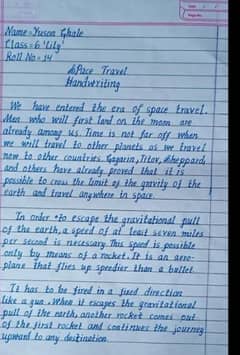 Name - Yuson Ghale
Class = 6 'Lily'
Roll No = 14
Space Travel
Handwriting
We have entered the era of space travel.
Men who will first land on the moon are
already among us. Time is not far off when
we will travel to other planets as we travel
now to other countries. Gagarin, Titov, Sheppard,
and others have already proved that it is
possible to cross the limit of the gravity of the
earth and travel anywhere in space.
In order to escape the gravitational pull
of the earth, a speed of at least seven miles
per second is necessary. This speed is possible
only by means of a rocket. It is an aero-
plane that flies up speedier than a bullet.
It has to be fired in a fixed direction
like a gun. When it escapes the gravitational
pull of the earth, another rocket comes out
of the first rocket and continues the journey
upward to any destination.